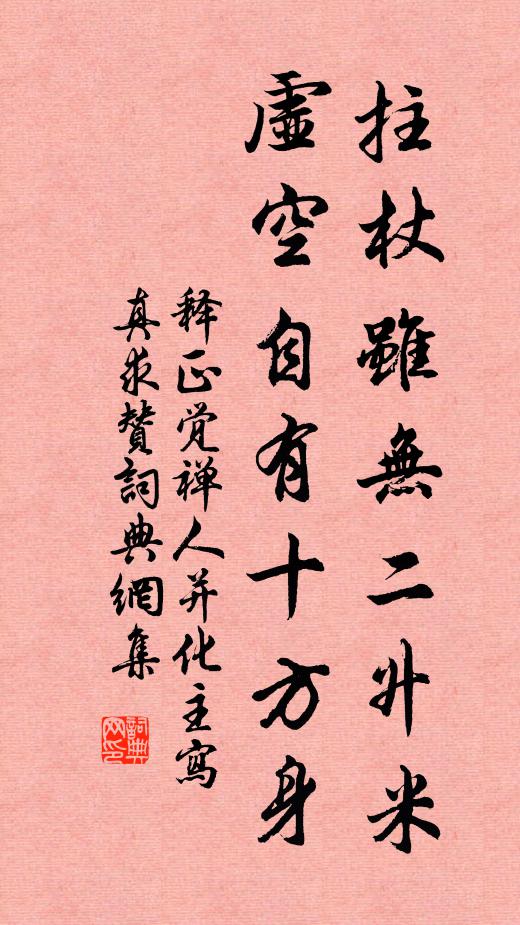 拄杖雖無二升米
虛空自有十方身
释正觉禅人并化主寫
真求贊詞典網集
詞典網印